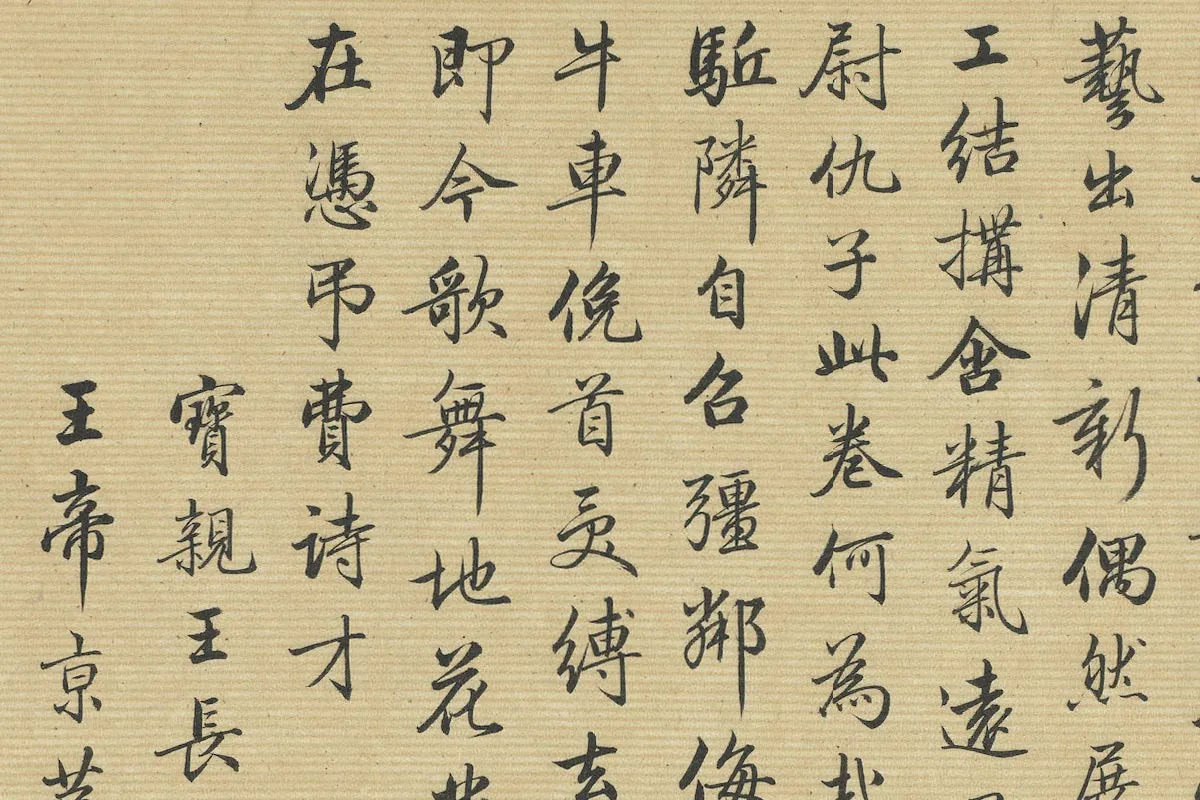 藝出清新偶然展
工結搆含精氣遠
尉仇子此卷何為
駈隣自召彊鄰侮
牛車俛首受縛去
即今歌舞地花
在憑弔費詩才
寶親王長
王帝京